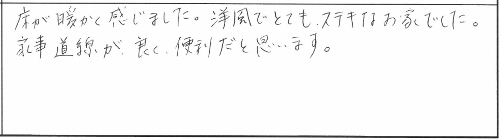 床が暖かく感じました。洋風でとても、ステキなお家でした。
家事道線が、良く、便利だと思います。